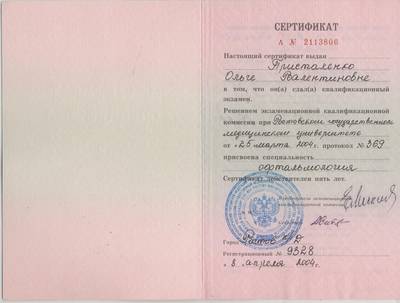 СЕРТИФИКАТ
А № 2113806
Настоящий сертификат выдан
Присталенко
Ольге Валентиновне
в том, что он(а) сдал(а) квалификационный
экзамен.
Решением экзаменационной квалификационной
комиссии при Ростовском государственном
медицинском университете
от «25» марта 2004 г. протокол № 369
присвоена специальность
офтальмология
Сертификат действителен пять лет.
Город Ростов н/Д
Регистрационный № 9328
«8» апреля 2004 г.